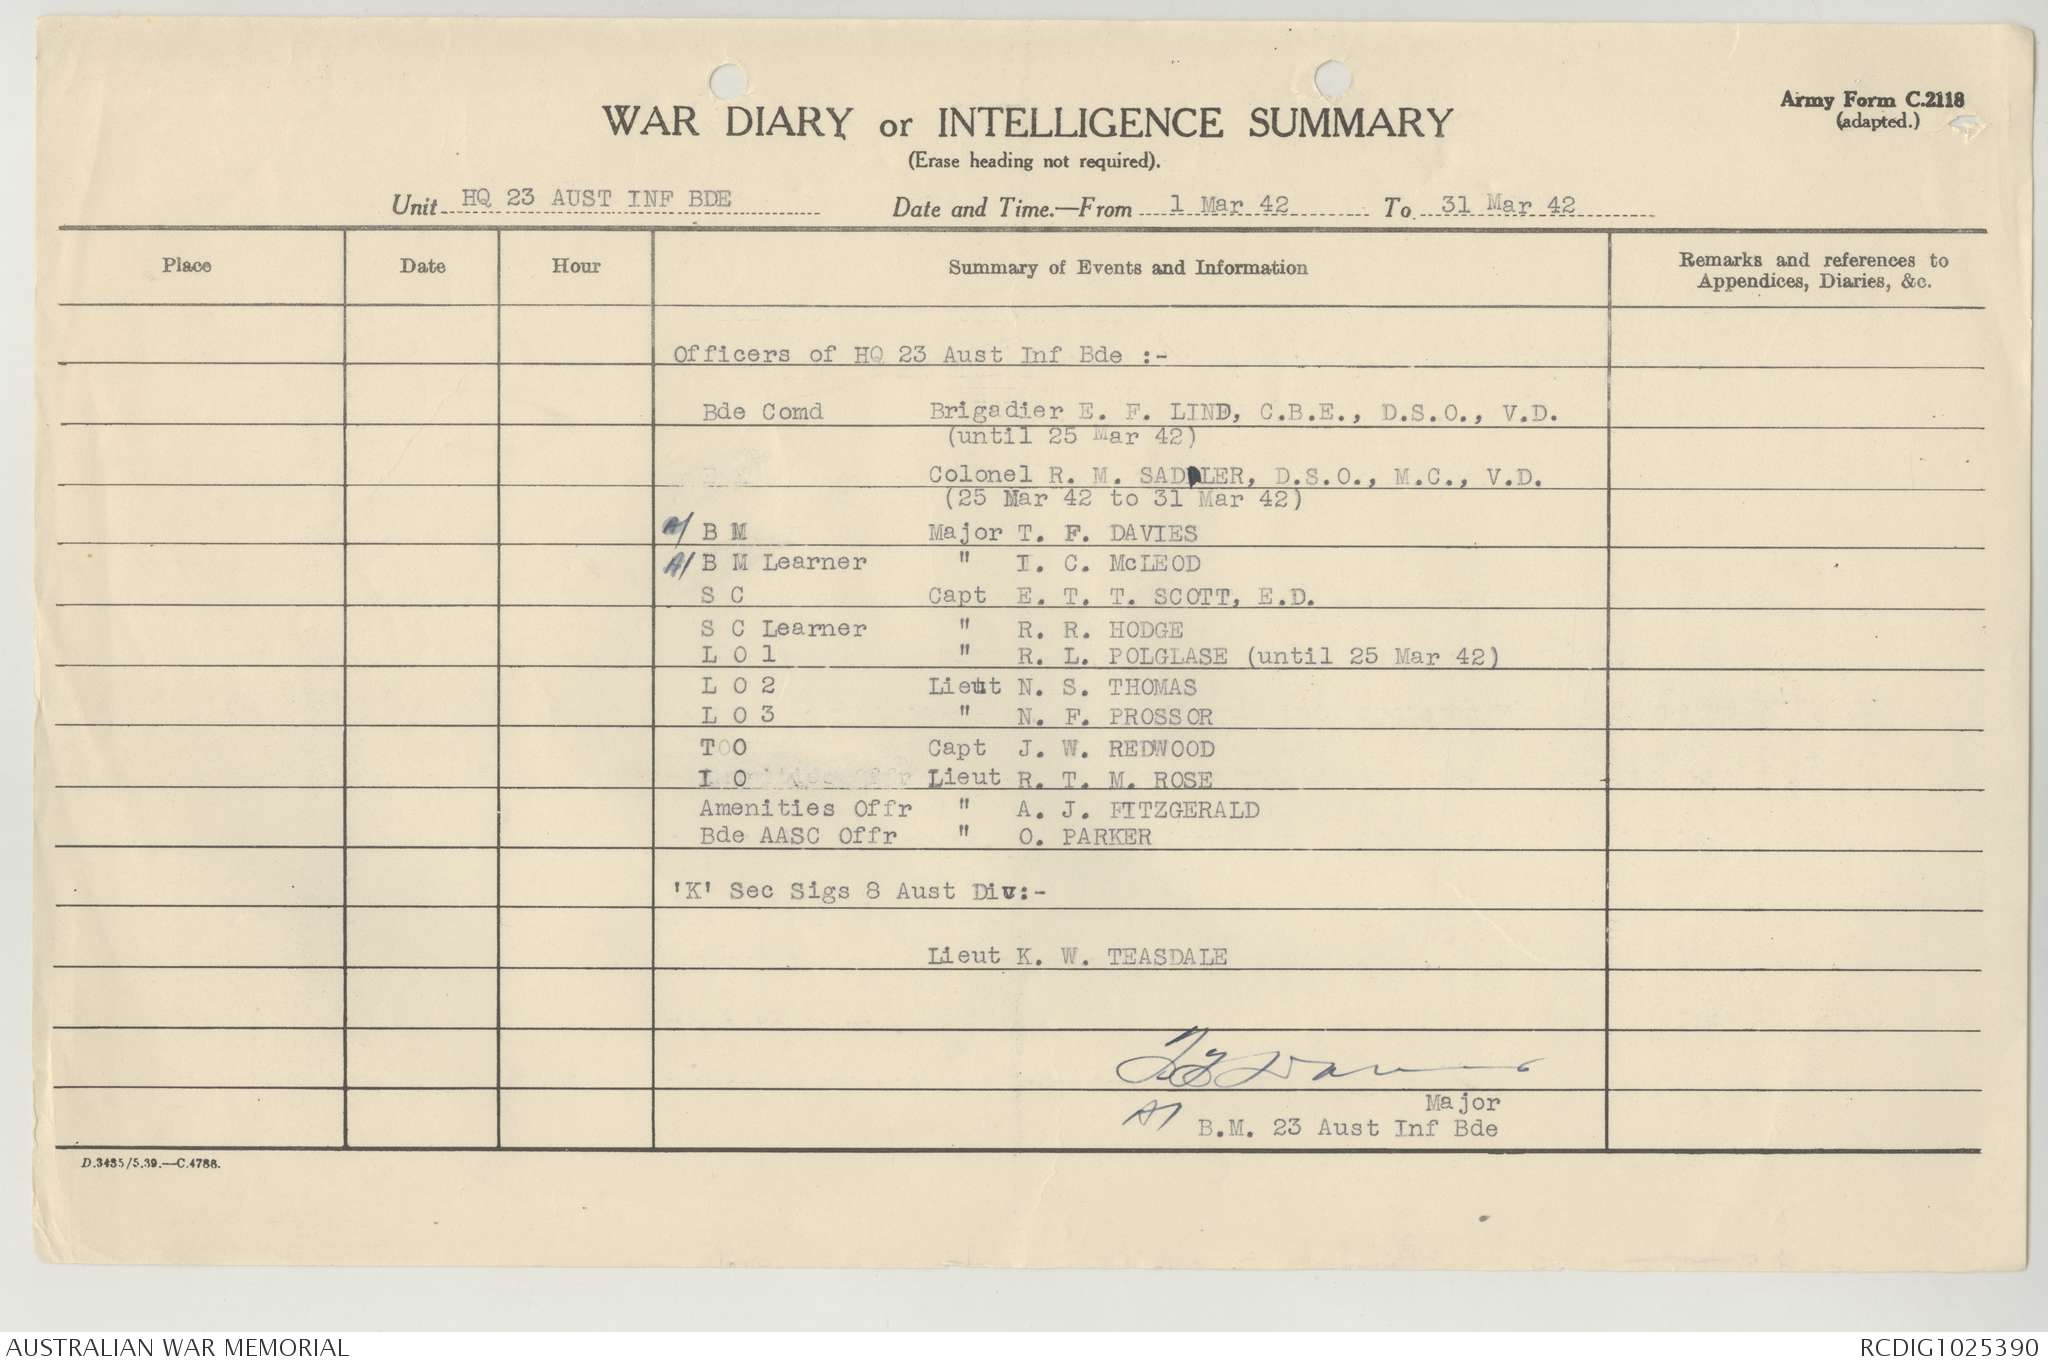 Army Form C.2118
(adapted.)
WAR DIARY or INTELLIGENCE SUMMARY
(Erase heading not required).
Unit HQ 23 AUST INF BDE Date and Time.—From 1 Mar 42 To 31 Mar 42
Place Date Hour Summary of Events and Information Remarks and references to Appendices, Diaries, &c.
Officers of HQ 23 Aust Inf Bde :-
Bde Comd Brigadier E. F. LIND, C.B.E., D.S.O., V.D.
(until 25 Mar 42)
Colonel R. M. SADLER, D.S.O., M.C., V.D.
(25 Mar 42 to 31 Mar 42)
A/ B M Major T. F. DAVIES
A/ B M Learner " I. C. McLEOD
S C Capt E. T. T. SCOTT, E.D.
S C Learner " R. R. HODGE
L O 1 " R. L. POLGLASE (until 25 Mar 42)
L O 2 Lieut N. S. THOMAS
L O 3 " N. F. PROSSOR
T O O Capt J. W. REDWOOD
I O Lieut R. T. M. ROSE
Amenities Offr " A. J. FITZGERALD
Bde AASC Offr " O. PARKER
'K' Sec Sigs 8 Aust Div:-
Lieut K. W. TEASDALE
T F Davies
Major
A/ B.M. 23 Aust Inf Bde
D.3485/5.39.—C.4788.
AUSTRALIAN WAR MEMORIAL RCDIG1025390